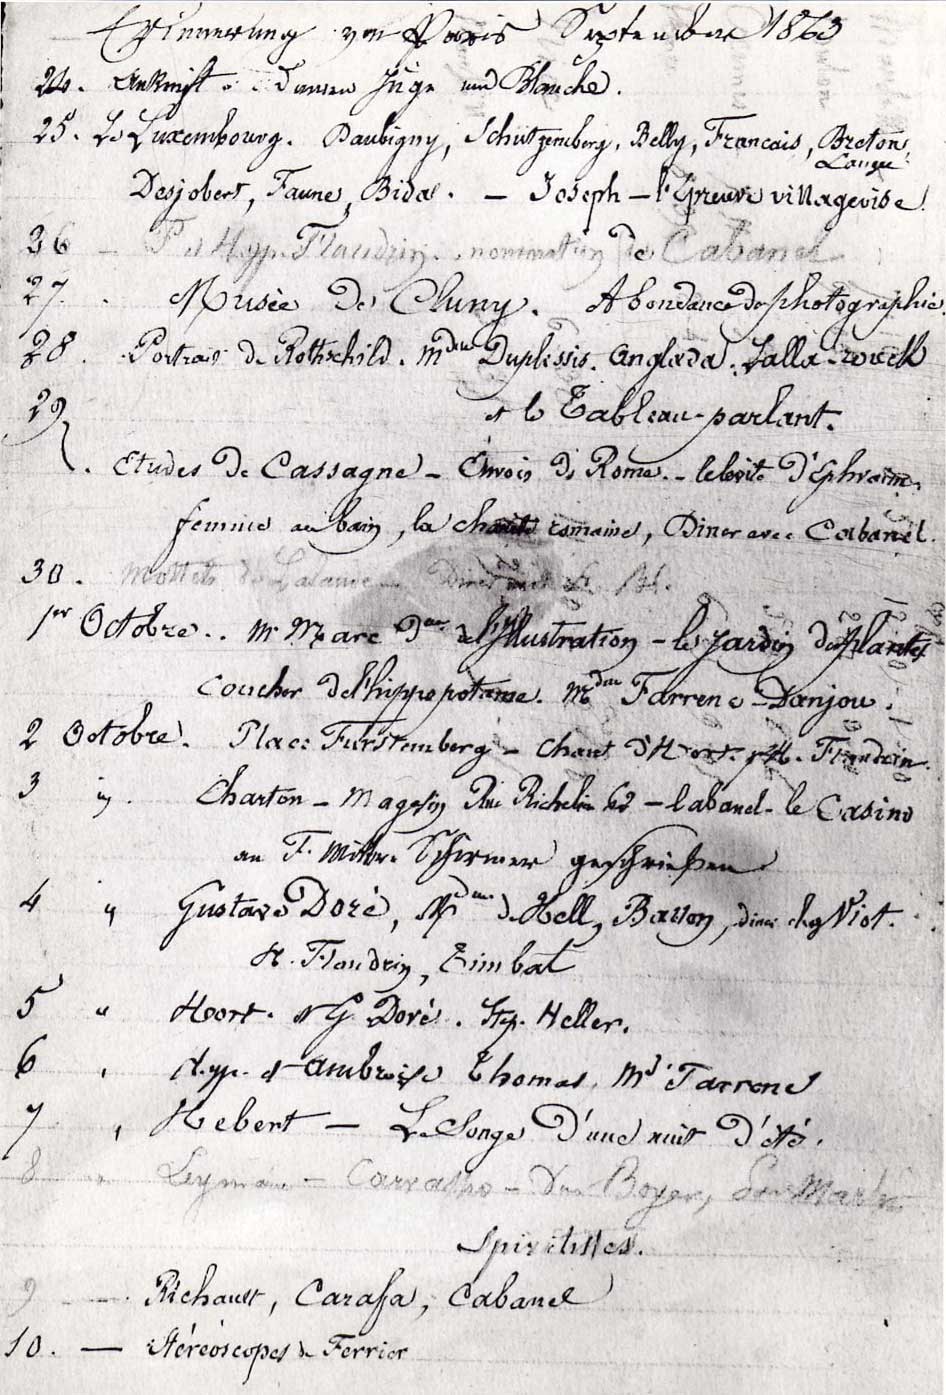 Erinnerung von Paris September 1863
24. Ankunft. Damen Juge und Blanche.
25. Le Luxembourg. Daubigny, Schützemberg, Belly, Francais, Breton,
Desjobert, Faune, Bida. — Joseph — l'Epreuve villageoise.
26 — P et Hypp. Flandrin. nomination de Cabanel
27. Musée de Cluny. Abondance de photographie.
28. Portrait de Rothschild. Mdme Duplessis. Anglada. Lalla-rouck
29 et le Tableau-parlant.
Etudes de Cassagne — Envois de Rome. — le lévite d'Ephraim,
femme au bain, la charité romaine, Diner avec Cabanel.
30. Diner
1er Octobre. Mr Marc Deur de l'Illustration — le Jardin des plantes
Coucher de l'hippopotame. Mdme Farrenc-Danjou.
2 Octobre. Place Furstemberg — Chant d'H. p. H. Flandrin.
3 " Charton — Magasin Rue Richelieu 62 — Cabanel — le Casino
an F. Schirmer geschrieben
4 " Gustave Doré, Mdme de Hell, Barron, diner chez Viot.
H. Flandrin, Timbal
5 " Hort. et G. Doré. Stp. Heller.
6 " Hypp. et Ambroise Thomas. Md Farrenc
7 " Hebert — Le Songe d'une nuit d'été.
8 " Carvalho — Boyer,
Spiritistes.
9 — Richault, Carafa, Cabanel
10. — Stéréoscopes de Ferrier